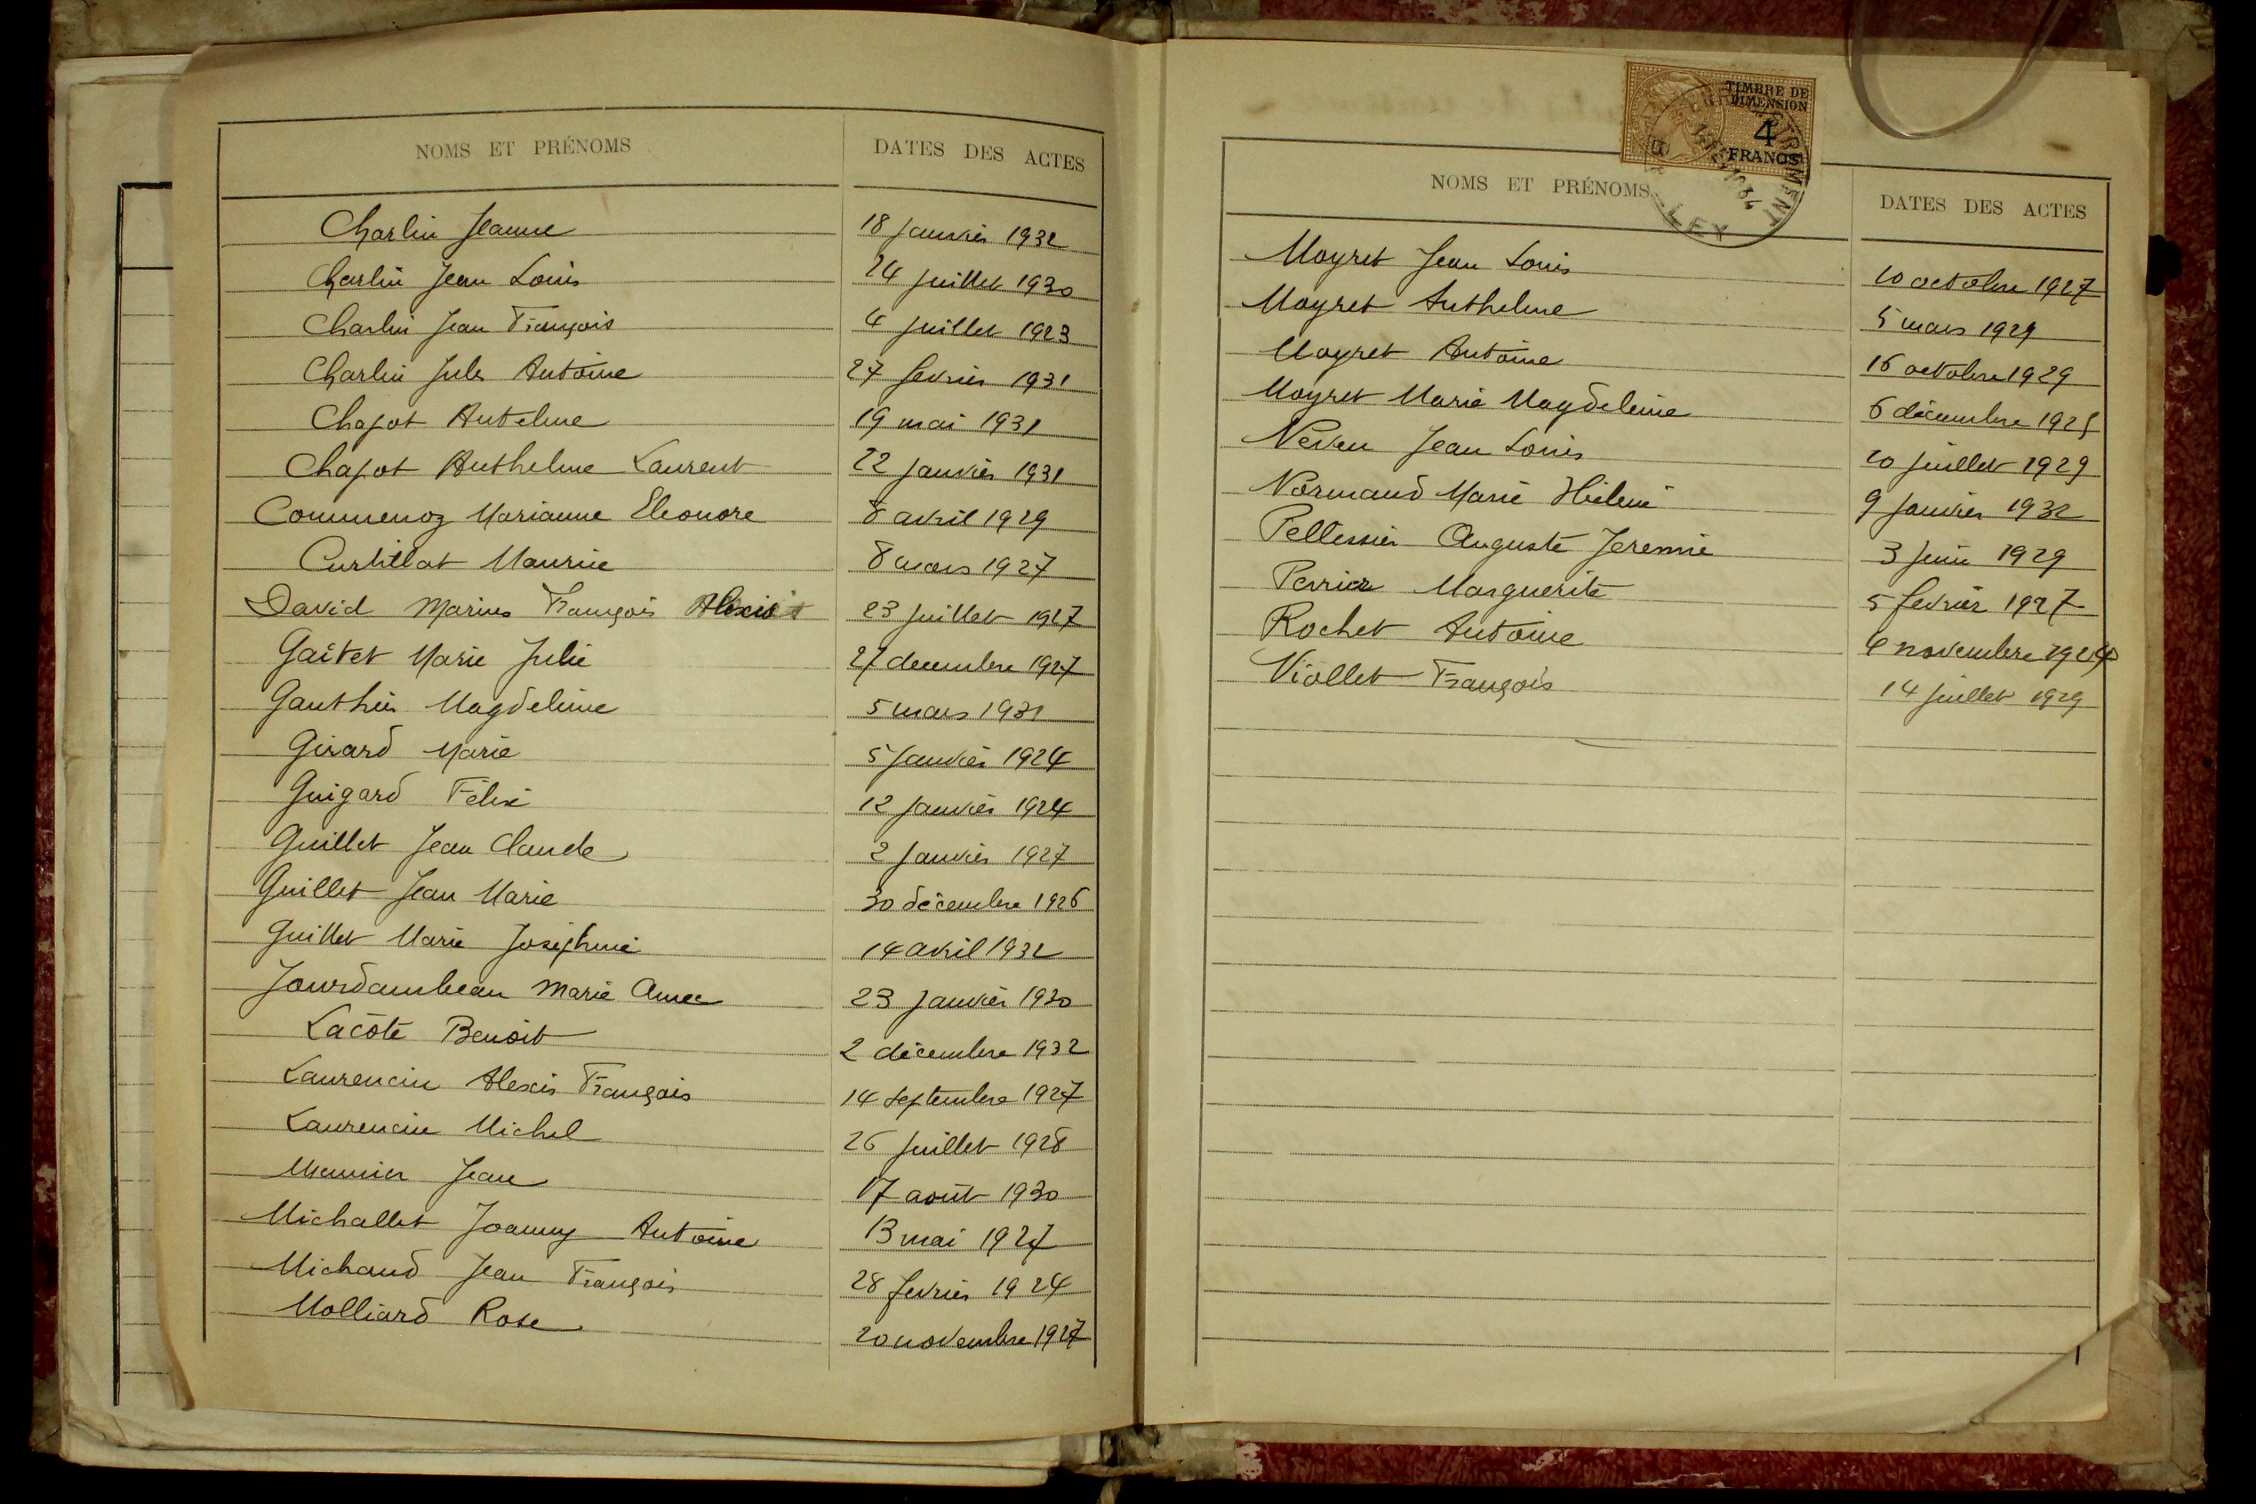 NOMS ET PRÉNOMS DATES DES ACTES
Charlin Jeanne 18 janvier 1932
Charlin Jean Louis 24 juillet 1930
Charlin Jean François 4 juillet 1923
Charlin Jules Antoine 27 fevrier 1931
Chapot Antelme 19 mai 1931
Chapot Anthelme Laurent 22 janvier 1931
Commenoz Marianne Eleonore 8 avril 1929
Curtillat Maurice 8 mars 1927
David Marius François Alexis 23 juillet 1927
Gaitet Marie Julie 27 decembre 1927
Gauthier Magdeleine 5 mars 1931
Girard Marie 5 janvier 1924
Guigard Félix 12 janvier 1924
Guillet Jean Claude 2 janvier 1927
Guillet Jean Marie 30 décembre 1926
Guillet Marie Josephine 14 avril 1932
Jourdambeau Marie 23 janvier 1930
Lacôte Benoit 2 décembre 1932
Laurencin Alexis François 14 septembre 1927
Laurencin Michel 26 juillet 1928
Meunier Jean 17 août 1930
Michallet Joanny Antoine 13 mai 1927
Michaud Jean François 28 fevrier 1924
Molliard Rose 20 novembre 1927
TIMBRE DE
DIMENSION
4
FRANCS
NOMS ET PRÉNOMS DATES DES ACTES
Moyret Jean Louis 10 octobre 1927
Moyret Anthelme 5 mars 1929
Moyret Antoine 16 octobre 1929
Moyret Marie Magdeleine 6 décembre 1925
Neveu Jean Louis 10 juillet 1929
Normand Marie Hélène 9 janvier 1932
Pellissier Auguste Jeremie 3 juin 1929
Perrier Marguerite 5 fevrier 1927
Rochet Antoine novembre
Viollet François 14 juillet 1929